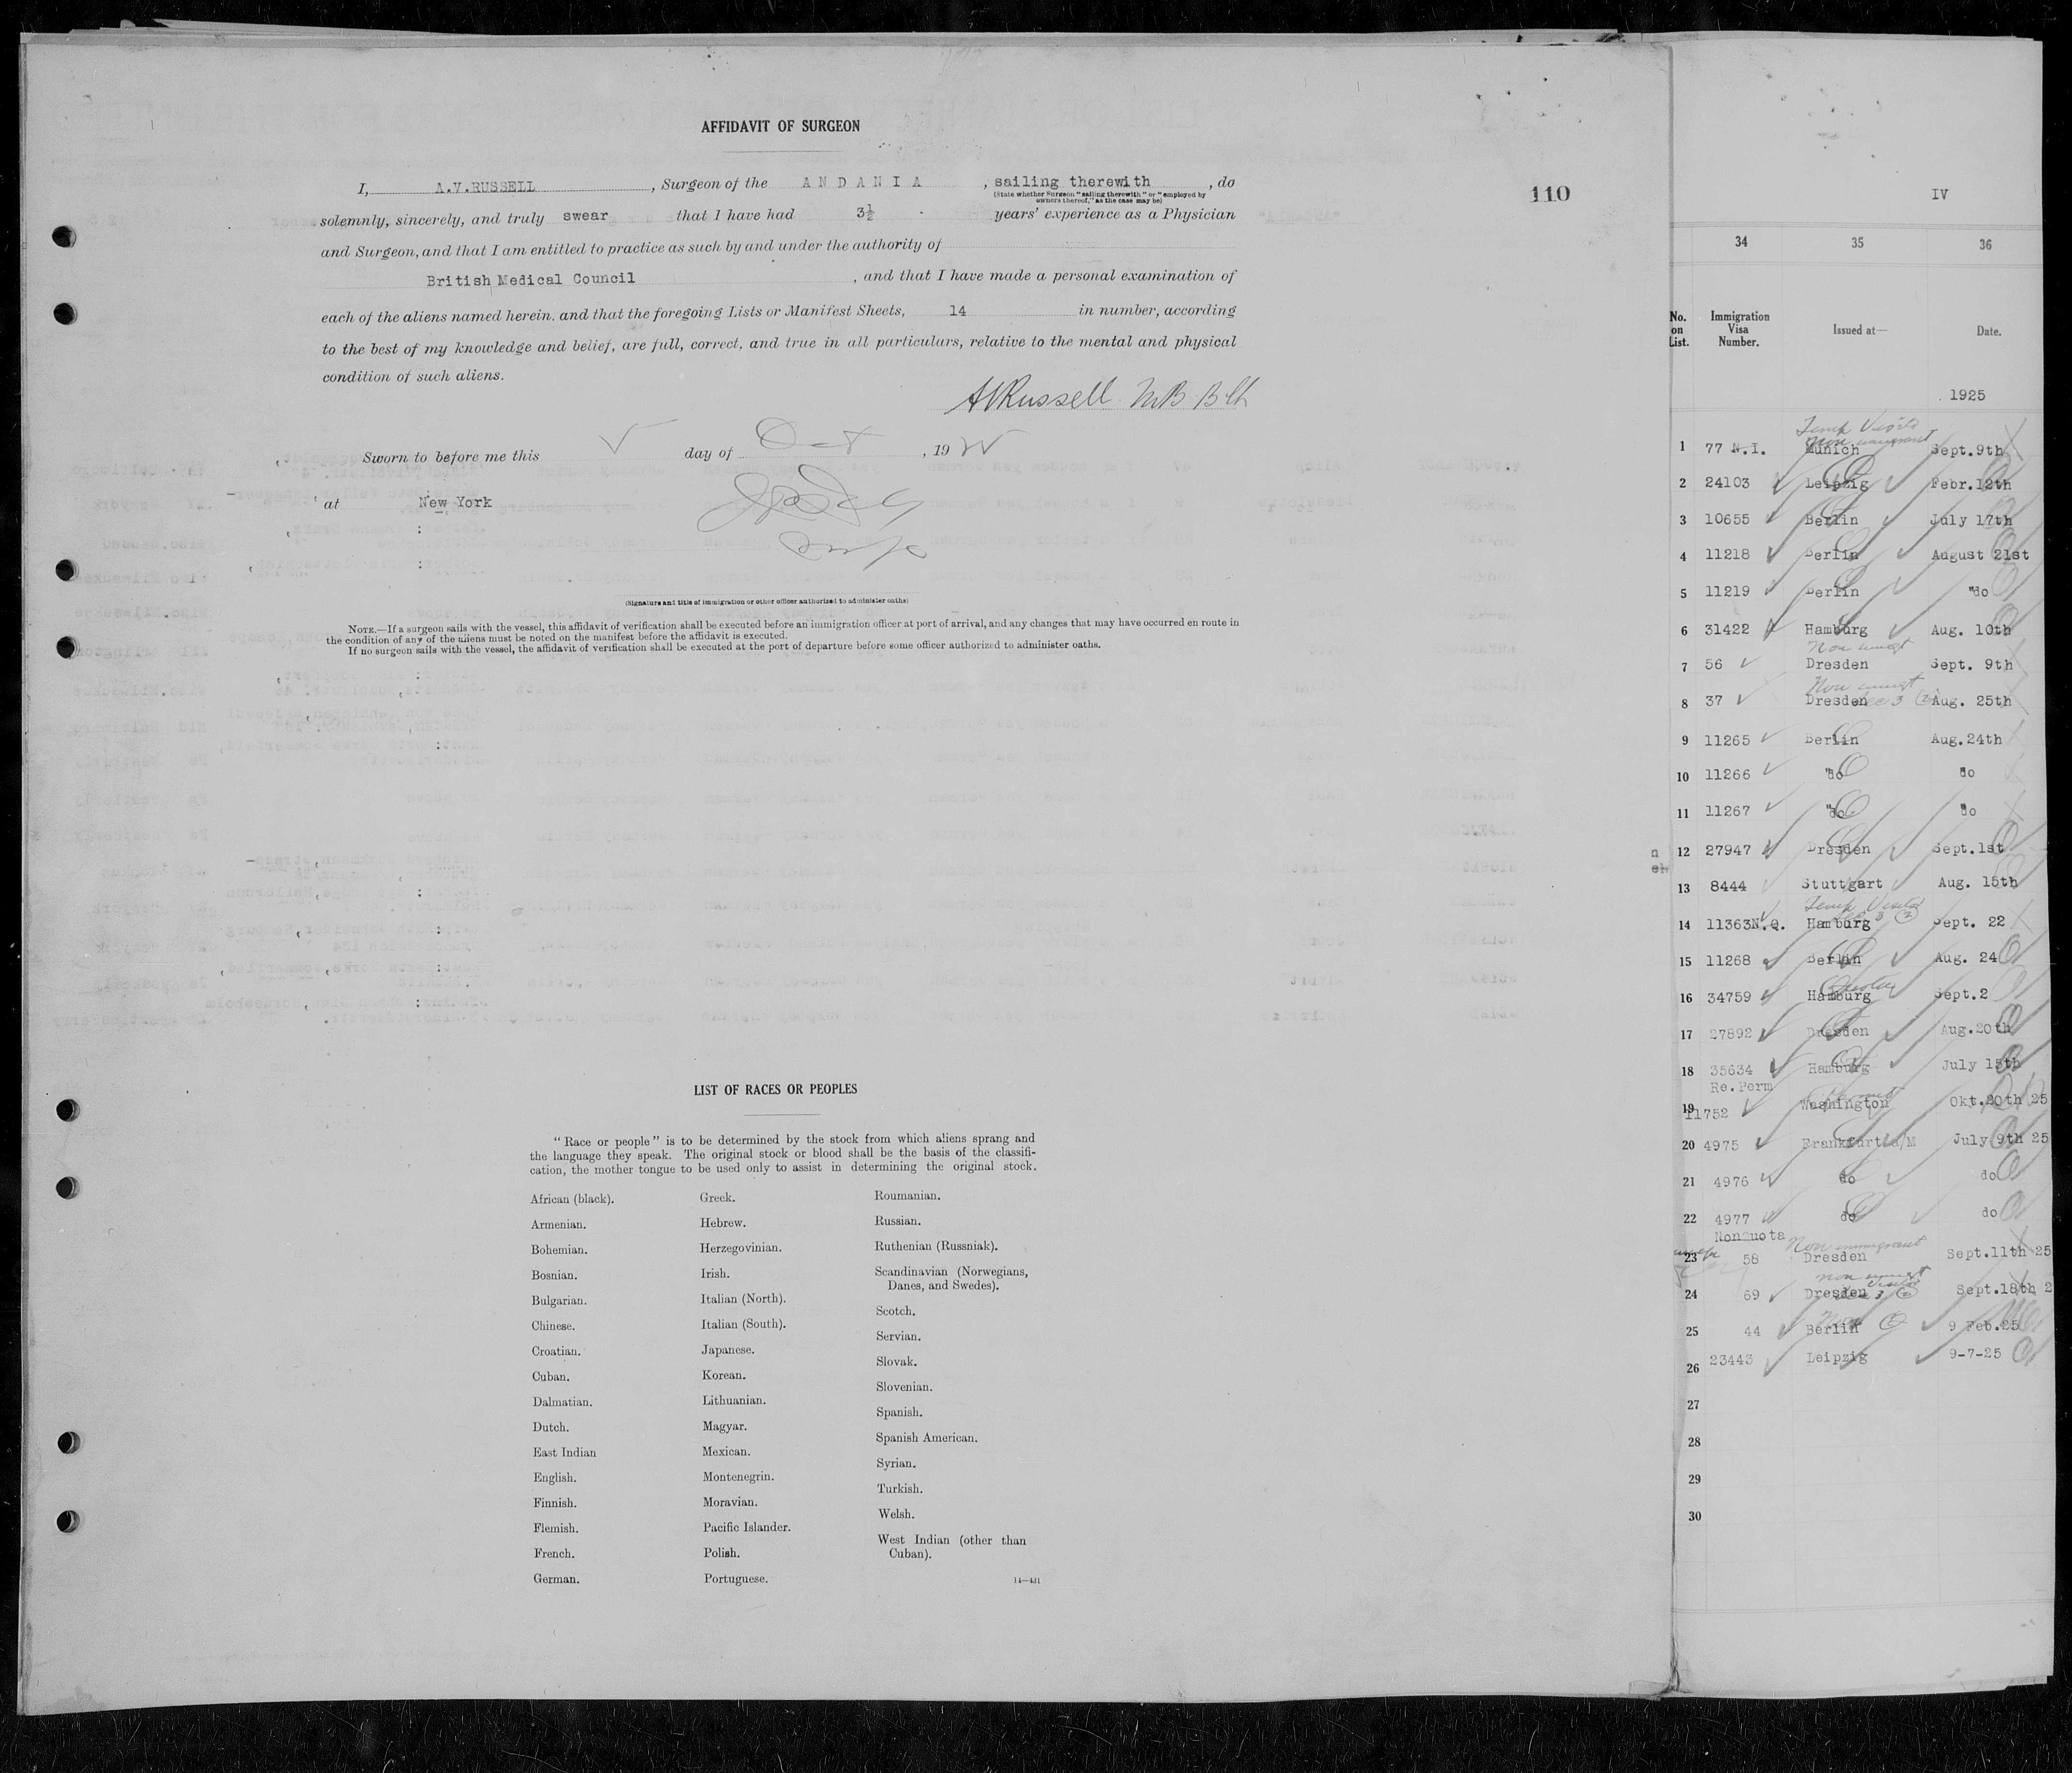 AFFIDAVIT OF SURGEON
I, A.V.RUSSELL, Surgeon of the A N D A N I A, sailing therewith, do
(State whether Surgeon "sailing therewith" or "employed by
owners thereof," as the case may be)
110
solemnly, sincerely, and truly swear that I have had 3½ years' experience as a Physician
and Surgeon, and that I am entitled to practice as such by and under the authority of
British Medical Council, and that I have made a personal examination of
each of the aliens named herein, and that the foregoing Lists or Manifest Sheets, 14 in number, according
to the best of my knowledge and belief, are full, correct, and true in all particulars, relative to the mental and physical
condition of such aliens.
AVRussell MB BCh
Sworn to before me this day of Oct, 19
at New York
(Signature and title of immigration or other officer authorized to administer oaths)
NOTE.—If a surgeon sails with the vessel, this affidavit of verification shall be executed before an immigration officer at port of arrival, and any changes that may have occurred en route in
the condition of any of the aliens must be noted on the manifest before the affidavit is executed.
If no surgeon sails with the vessel, the affidavit of verification shall be executed at the port of departure before some officer authorized to administer oaths.
LIST OF RACES OR PEOPLES
"Race or people" is to be determined by the stock from which aliens sprang and
the language they speak. The original stock or blood shall be the basis of the classifi-
cation, the mother tongue to be used only to assist in determining the original stock.
African (black).
Armenian.
Bohemian.
Bosnian.
Bulgarian.
Chinese.
Croatian.
Cuban.
Dalmatian.
Dutch.
East Indian
English.
Finnish.
Flemish.
French.
German.
Greek.
Hebrew.
Herzegovinian.
Irish.
Italian (North).
Italian (South).
Japanese.
Korean.
Lithuanian.
Magyar.
Mexican.
Montenegrin.
Moravian.
Pacific Islander.
Polish.
Portuguese.
Roumanian.
Russian.
Ruthenian (Russniak).
Scandinavian (Norwegians,
Danes, and Swedes).
Scotch.
Servian.
Slovak.
Slovenian.
Spanish.
Spanish American.
Syrian.
Turkish.
Welsh.
West Indian (other than
Cuban).
14—431
IV
34 35 36
No. on List. Immigration Visa Number. Issued at— Date.
1925
Temp Visitor
Non immigrant
1 77 N.I. Munich Sept.9th
2 24103 Leipzig Febr.12th
3 10655 Berlin July 17th
4 11218 Berlin August 21st
5 11219 Berlin "do
6 31422 Hamburg Aug. 10th
Non immgt
7 56 Dresden Sept. 9th
Non immgt
8 37 Dresden Sec 3 (2) Aug. 25th
9 11265 Berlin Aug.24th
10 11266 "do "do
11 11267 "do "do
12 27947 Dresden Sept.1st
13 8444 Stuttgart Aug. 15th
Temp Visitor
Sec 3 (2)
14 11363N.Q. Hamburg Sept. 22
15 11268 Berlin Aug. 24
16 34759 Hamburg Sept.2
17 27892 Dresden Aug.20th
18 35634 Hamburg July 15th
Re.Perm
19 11752 Washington Okt.20th 25
20 4975 Frankfurt a/M July 9th 25
21 4976 do do
22 4977 do do
NonQuota Non immigrant
23 58 Dresden Sept.11th 25
Non immgt
Visitor
24 69 Dresden Sec 3 (2) Sept.18th 2
25 44 Berlin 9 Feb.25
26 23443 Leipzig 9-7-25
27
28
29
30